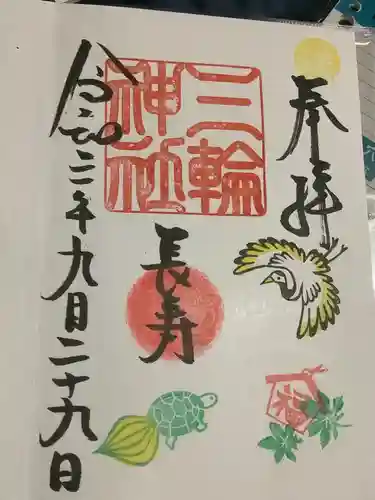 奉拝
三輪
神社
長寿
令和二年九月二十九日